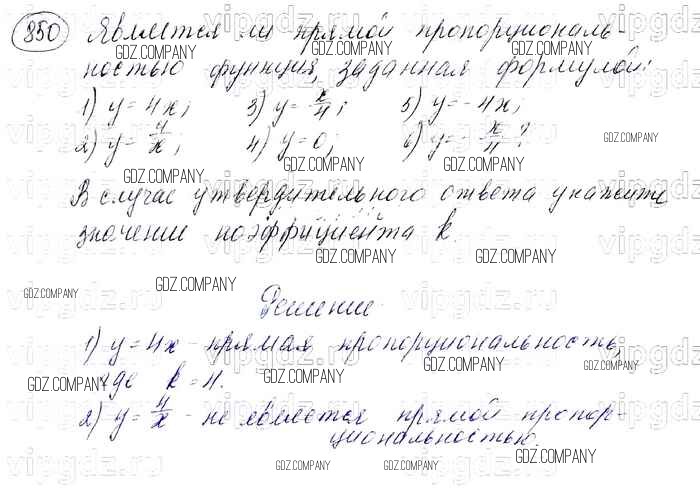 850 Является ли прямой пропорциональ-
ностью функция, заданная формулой:
1) y = 4x; 3) y = x/4; 5) y = -4x;
2) y = 4/x; 4) y = 0; 6) y = -x/4?
В случае утвердительного ответа укажите
значение коэффициента k.
Решение
1) y = 4x - прямая пропорциональность,
где k = 4.
2) y = 4/x - не является прямой пропор-
циональностью.
GDZ.COMPANY
vipgdz.ru